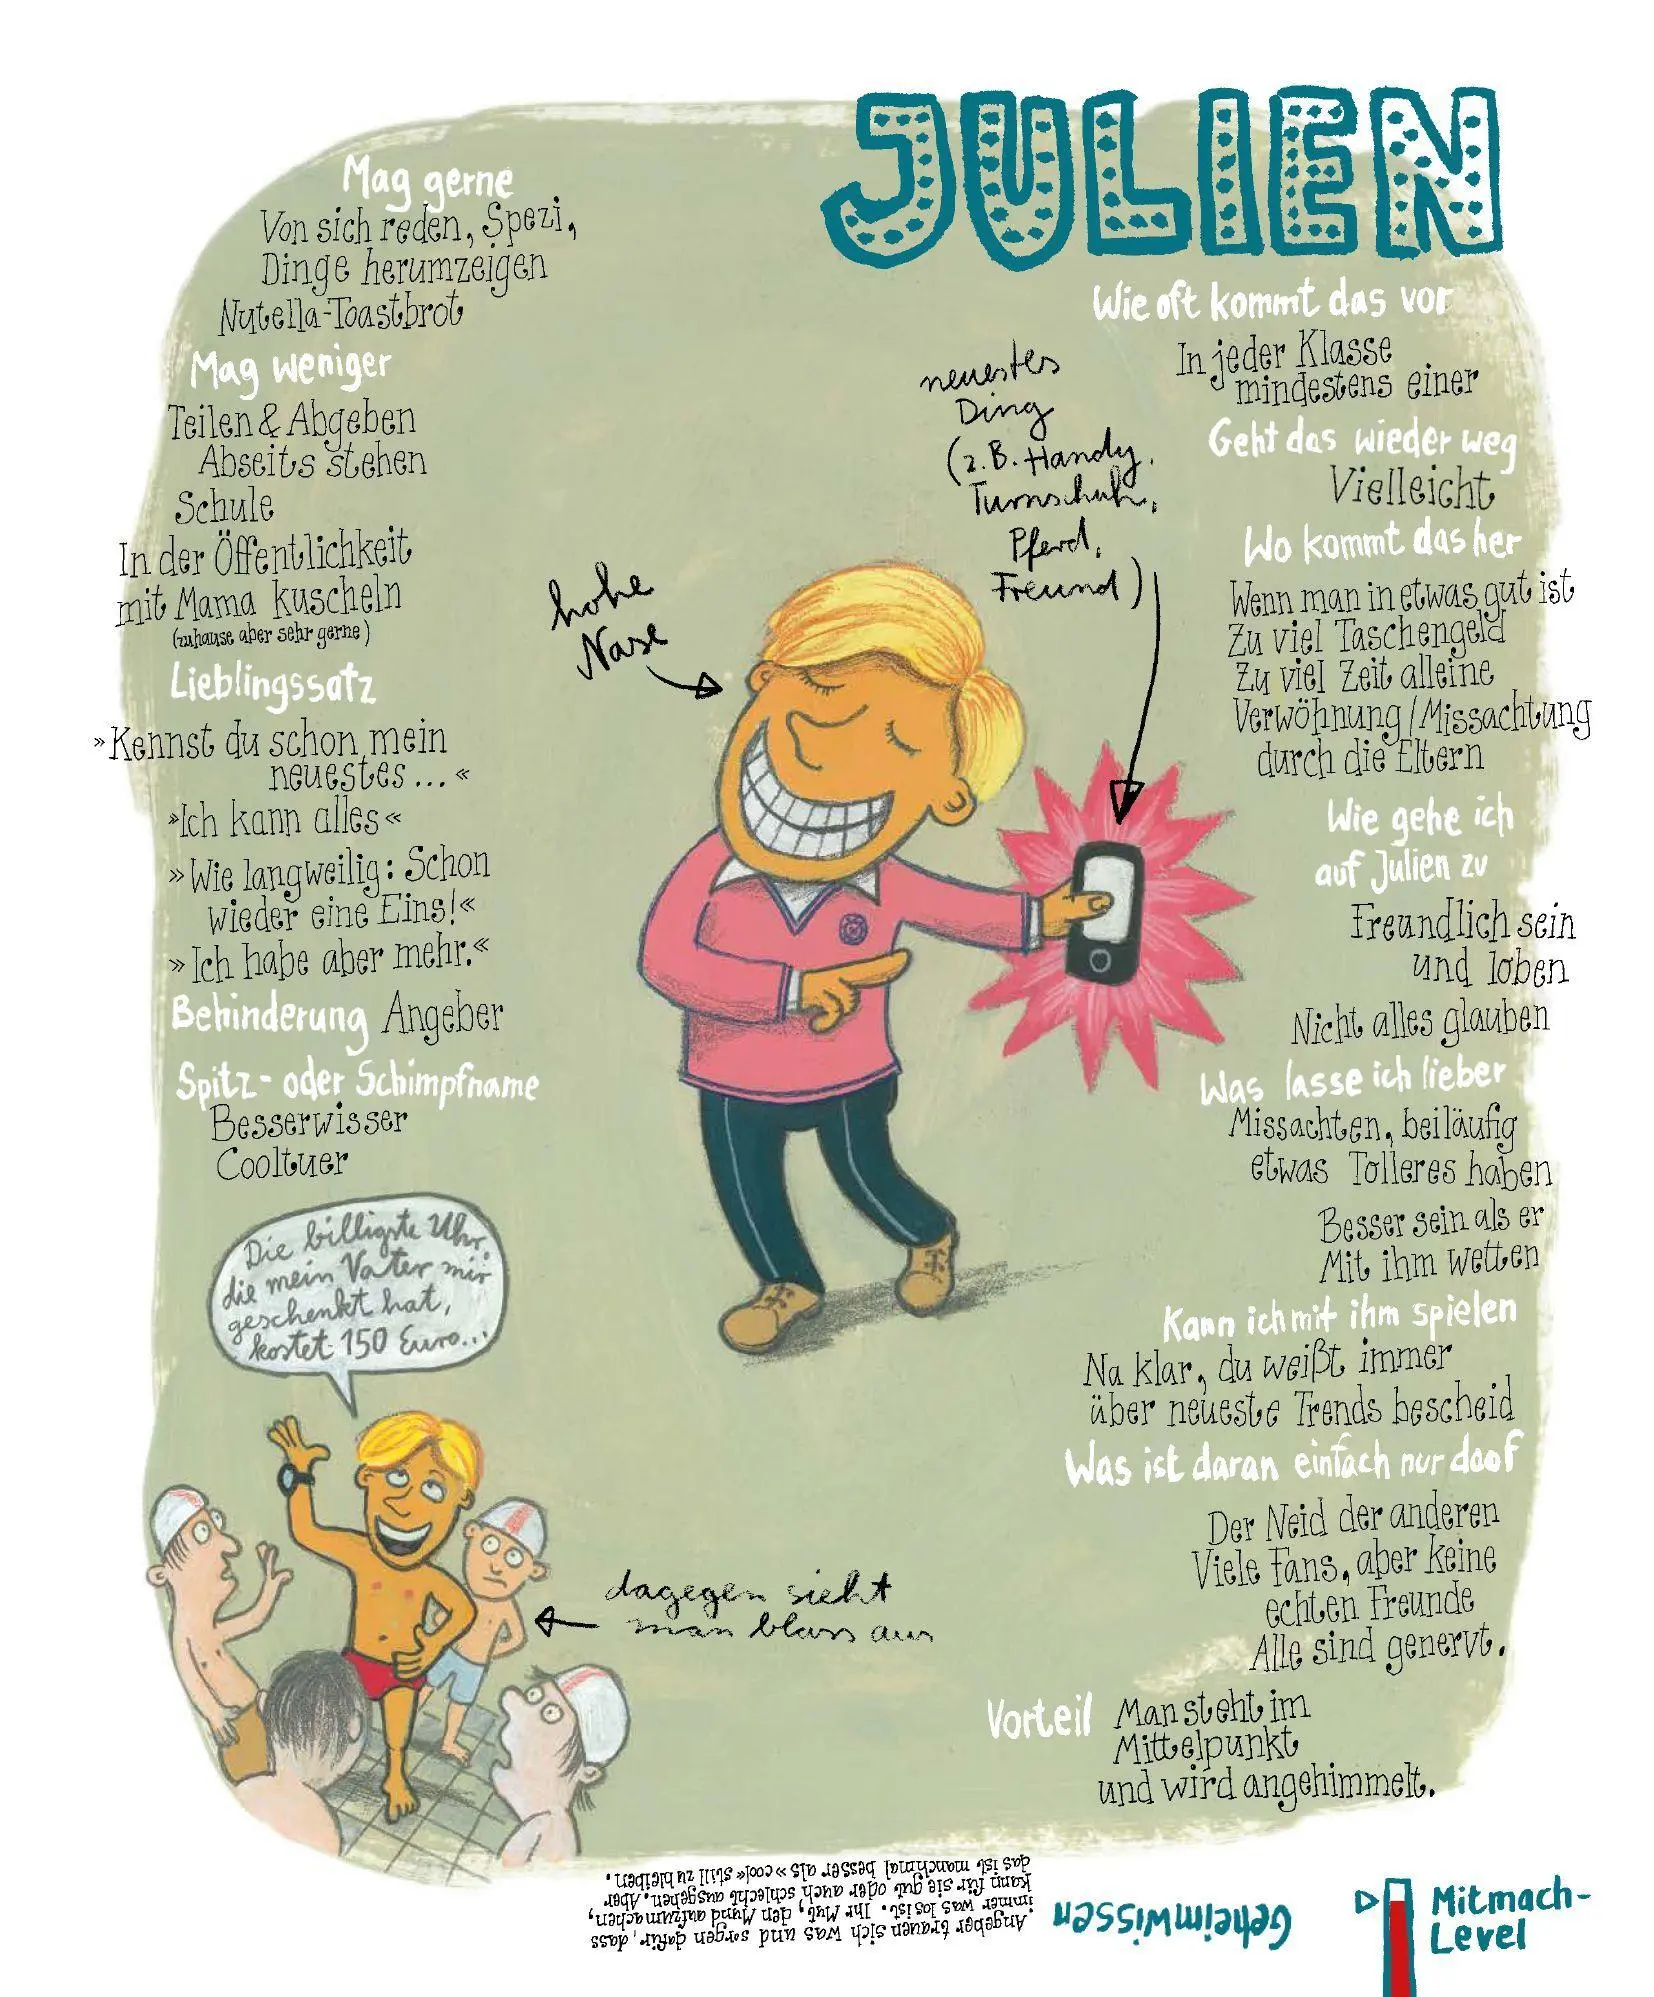 JULIEN
Mag gerne
Von sich reden, Spezi,
Dinge herumzeigen
Nutella-Toastbrot
Mag weniger
Teilen & Abgeben
Abseits stehen
Schule
In der Öffentlichkeit
mit Mama kuscheln
(zuhause aber sehr gerne)
Lieblingssatz
»Kennst du schon mein
neuestes ... «
»Ich kann alles«
»Wie langweilig: Schon
wieder eine Eins!«
»Ich habe aber mehr.«
Behinderung Angeber
Spitz- oder Schimpfname
Besserwisser
Cooltuer
Die billigste Uhr,
die mein Vater mir
geschenkt hat,
kostet 150 Euro...
hohe
Nase
neuestes
Ding
(z.B. Handy,
Turnschuh,
Pferd,
Freund)
dagegen sieht
man blass aus
Wie oft kommt das vor
In jeder Klasse
mindestens einer
Geht das wieder weg
Vielleicht
Wo kommt das her
Wenn man in etwas gut ist
Zu viel Taschengeld
Zu viel Zeit alleine
Verwöhnung/Missachtung
durch die Eltern
Wie gehe ich
auf Julien zu
Freundlich sein
und loben
Nicht alles glauben
Was lasse ich lieber
Missachten, beiläufig
etwas Tolleres haben
Besser sein als er
Mit ihm wetten
Kann ich mit ihm spielen
Na klar, du weißt immer
über neueste Trends bescheid
Was ist daran einfach nur doof
Der Neid der anderen
Viele Fans, aber keine
echten Freunde
Alle sind genervt.
Vorteil Man steht im
Mittelpunkt
und wird angehimmelt.
Geheimwissen
Angeber trauen sich was und sorgen dafür, dass
immer was los ist. Ihr Mut, den Mund aufzumachen,
kann für sie gut oder auch schlecht ausgehen. Aber
das ist manchmal besser als »cool« still zu bleiben.
Mitmach-
Level